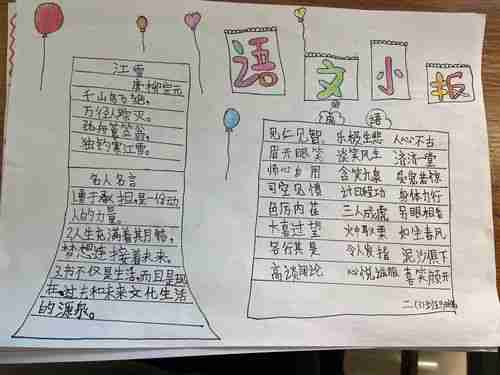 语文小报
江雪
唐柳宗元
千山鸟飞绝,
万径人踪灭。
孤舟蓑笠翁,
独钓寒江雪。
名人名言
1.勇于承担,是一份动
人的力量。
2.人生充满着其月待,
梦想连接着未来。
3.书不仅是生活,而且是现
在、过去和未来文化生活
的源泉。
成语
见仁见智 乐极生悲 人心不古
眉开眼笑 谈笑风生 济济一堂
师心自用 含笑九泉
司空见惯 计日程功 身体力行
色厉内荏 三人成虎 另眼相看
大喜过望 火中取栗 如坐春风
各行其是 令人发指 泥沙俱下
高谈阔论 心悦诚服 喜笑颜开
二、(3)班